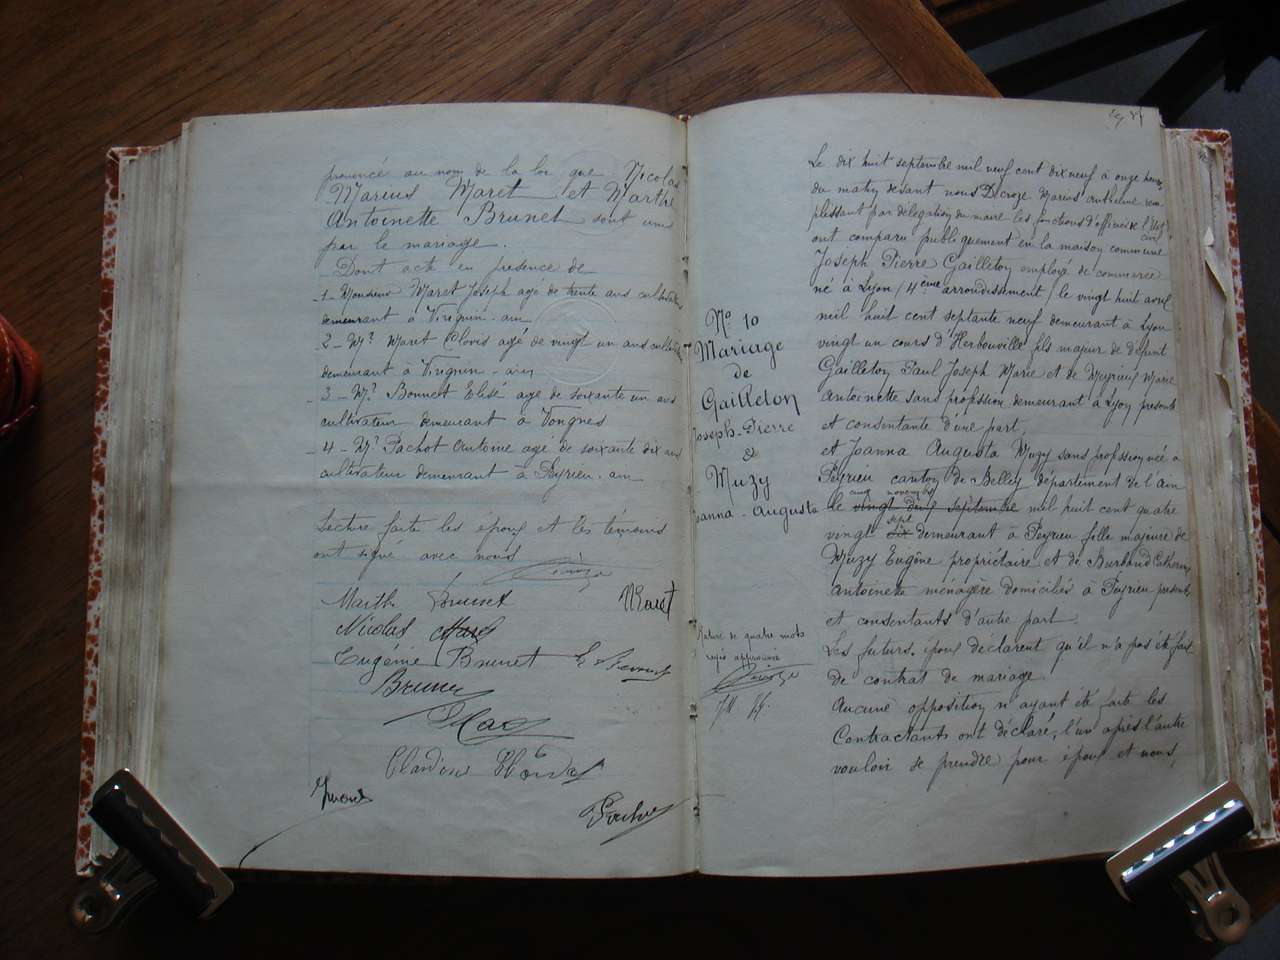 prononcé au nom de la loi que Nicolas
Marius Maret et Marthe
Antoinette Brunet sont unis
par le mariage.
Dont acte en présence de
1 - Monsieur Maret Joseph agé de trente ans cultivateur
demeurant à Virignin - ain
2 - Mr Maret Clovis agé de vingt un ans cultivateur
demeurant à Virignin - ain
3 - Mr Bonnet Elisé agé de soixante un ans
cultivateur demeurant à Vongnes
4 - Mr Pochot Antoine agé de soixante dix ans
cultivateur demeurant à Peyrieu - ain
Lecture faite les époux et les témoins
ont signé avec nous
Marthe Brunet Maret
Nicolas Maret
Eugénie Brunet
Brunet
Claudine
Pochot
Le dix huit septembre mil neuf cent dix neuf à onze heures
du matin devant nous Decroze Marius cultivateur rem-
plissant par délégation du maire les fonctions d'officier de l'Etat
civil
ont comparu publiquement en la maison commune
Joseph Pierre Gailleton employé de commerce
né à Lyon (4ème arrondissement) le vingt huit avril
mil huit cent septante neuf demeurant à Lyon
vingt un cours d'Herbouville fils majeur de défunt
Gailleton Paul Joseph Marie et de Meyrieux Marie
Antoinette sans profession demeurant à Lyon présente
et consentante d'une part,
et Joanna Augusta Muzy sans profession née à
Peyrieu canton de Belley département de l'ain
cinq novembre
le vingt deux septembre mil huit cent quatre
sept
vingt dix demeurant à Peyrieu fille majeure de
Muzy Eugène propriétaire et de Burbaud Catherine
Antoinette ménagère domiciliés à Peyrieu présents
et consentants d'autre part.
Les futurs époux déclarent qu'il n'a pas été fait
de contrat de mariage
Aucune opposition n'ayant été faite les
Contractants ont déclaré, l'un après l'autre
vouloir se prendre pour époux et nous,
No 10
Mariage
de
Gailleton
Joseph-Pierre
&
Muzy
Joanna-Augusta
Rature de quatre mots
rayés approuvée